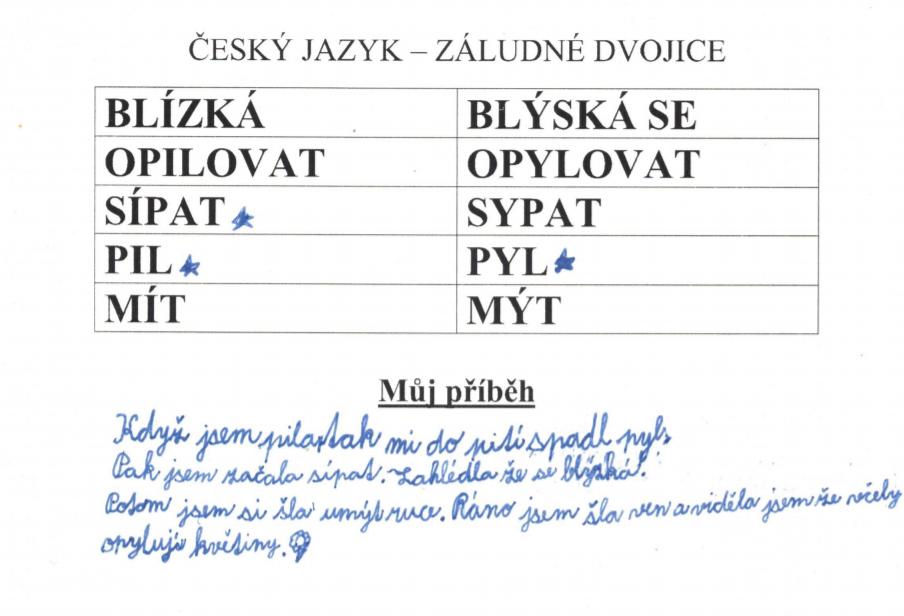 ČESKÝ JAZYK – ZÁLUDNÉ DVOJICE
BLÍZKÁ BLÝSKÁ SE
OPILOVAT OPYLOVAT
SÍPAT SYPAT
PIL PYL
MÍT MÝT
Můj příběh
Když jsem pila, tak mi do pití spadl pyl.
Pak jsem začala sípat. Zahlédla že se blýzká!
Potom jsem si šla umýt ruce. Ráno jsem šla ven a viděla jsem že včely
opylují květiny.